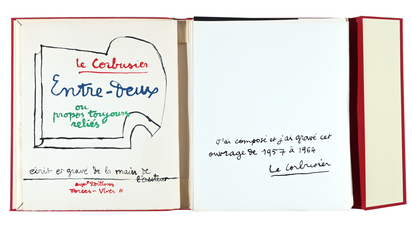 Le Corbusier
Entre-Deux
ou
propos toujours
reliés
écrit et gravé de la main de
l'auteur
aux Editions
"Forces-Vives"
J'ai composé et j'ai gravé cet
ouvrage de 1957 à 1964
Le Corbusier